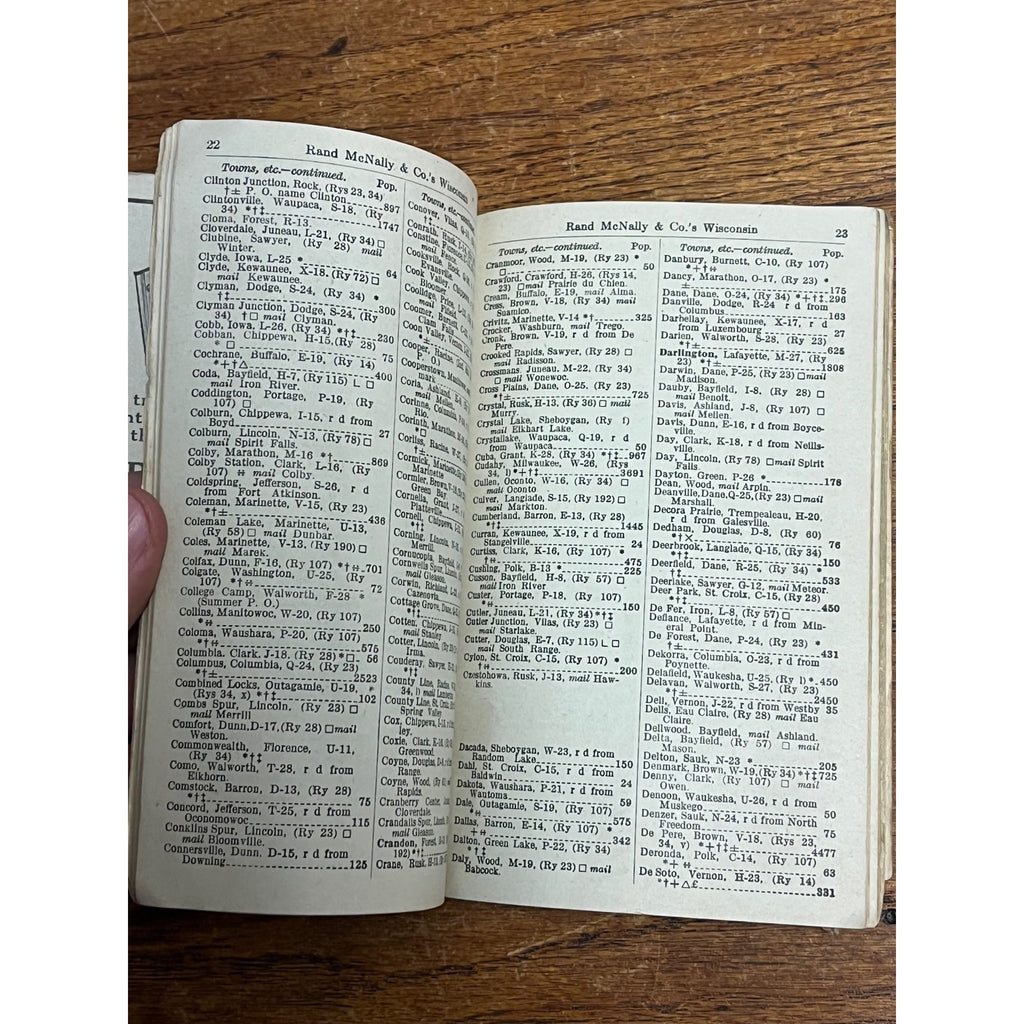 22
Rand McNally & Co.'s Wisconsin
Towns, etc.—continued. Pop.
Clinton Junction, Rock, (Rys 23, 34)
†± P. O. name Clinton 897
Clintonville, Waupaca, S-18, (Ry
34) *†‡ 1747
Cloma, Forest, R-13.
Cloverdale, Juneau, L-21, (Ry 34) □
Clubine, Sawyer, (Ry 28) mail
Winter.
Clyde, Iowa, L-25 * 64
Clyde, Kewaunee, X-18, (Ry 72) □
mail Kewaunee.
Clyman, Dodge, S-24, (Ry 34) *
†‡ 300
Clyman Junction, Dodge, S-24, (Ry
34) †□ mail Clyman.
Cobb, Iowa, L-26, (Ry 34) *†‡ 230
Cobban, Chippewa, H-15, (Ry 28)
*□ 75
Cochrane, Buffalo, E-19, (Ry 14)
*+†△ 400
Coda, Bayfield, H-7, (Ry 115) L □
mail Iron River.
Coddington, Portage, P-19, (Ry
107) □
Colburn, Chippewa, I-15, r d from
Boyd 27
Colburn, Lincoln, N-13, (Ry 78) □
mail Spirit Falls.
Colby, Marathon, M-16 *† 869
Colby Station, Clark, L-16, (Ry
107) ⌗ mail Colby.
Coldspring, Jefferson, S-26, r d
from Fort Atkinson.
Coleman, Marinette, V-15, (Ry 23)
*†± 436
Coleman Lake, Marinette, U-13,
(Ry 58) □ mail Dunbar.
Coles, Marinette, V-13, (Ry 190) □
mail Marek.
Colfax, Dunn, F-16, (Ry 107) *†⌗ 701
Colgate, Washington, U-25, (Ry
107) *†⌗ 72
College Camp, Walworth, F-28 *
(Summer P. O.)
Collins, Manitowoc, W-20, (Ry 107)
*⌗ 250
Coloma, Waushara, P-20, (Ry 107)
*†⌗ 575
Columbia, Clark, J-18, (Ry 28) *□ 56
Columbus, Columbia, Q-24, (Ry 23)
*†± 2523
Combined Locks, Outagamie, U-19,
(Rys 34, x) *†‡ 102
Combs Spur, Lincoln, (Ry 23) □
mail Merrill
Comfort, Dunn, D-17, (Ry 28) □ mail
Weston.
Commonwealth, Florence, U-11,
(Ry 34) *†‡
Como, Walworth, T-28, r d from
Elkhorn.
Comstock, Barron, D-13, (Ry 28)
*†‡ 75
Concord, Jefferson, T-25, r d from
Oconomowoc 115
Conklins Spur, Lincoln, (Ry 23) □
mail Bloomville.
Connersville, Dunn, D-15, r d from
Downing 125
Towns, etc.
Conover, Vilas,
Conrath, Rusk,
Constine,
Fence.
Cooksville, Rock,
Evansville.
Cook Valley, Chippewa,
Bloomer
Coolidge, Price,
mail Fifield.
Coomer, Burnett,
Clam Falls
Coon Valley, Vernon,
Cooper, Racine,
P. O.)
Cooperstown, Manitowoc,
mark
Coria, Ashland,
mail Mellen
Corinne, Columbia,
Rio.
Corinth, Marathon,
Corliss, Racine,
Cormick, Marinette,
Marinette
Cormier, Brown,
Green Bay
Cornelia, Grant,
Platteville.
Cornell, Chippewa,
Corning, Lincoln,
Merrill.
Cornucopia, Bayfield,
Cornwells Spur,
mail Gleason.
Corwin, Richland,
Cazenovia.
Cottage Grove, Dane,
Cotten, Chippewa,
mail Stanley
Cotter, Lincoln,
Irma.
Couderay, Sawyer,
County Line,
34, l) mail
County Line, St. Croix,
Spring Valley
Cox, Chippewa,
ley.
Coxie, Clark,
Greenwood.
Coyne, Douglas,
Range.
Coyne, Wood,
Rapids.
Cranberry Center,
Cloverdale.
Crandalls Spur, Lincoln,
mail Gleason.
Crandon, Forest,
192) *†‡
Crane, Rusk,
Rand McNally & Co.'s Wisconsin 23
Towns, etc.—continued. Pop.
Cranmoor, Wood, M-19, (Ry 23) *
□ 50
Crawford, Crawford, H-26, (Rys 14,
23) □ mail Prairie du Chien.
Cream, Buffalo, E-19, mail Alma.
Cross, Brown, V-18, (Ry 34) mail
Suamico.
Crivitz, Marinette, V-14 *† 325
Crocker, Washburn, mail Trego.
Cronk, Brown, V-19, r d from De
Pere.
Crooked Rapids, Sawyer, (Ry 28) □
mail Radisson.
Crossmans, Juneau, M-22, (Ry 34)
□ mail Wonewoc.
Cross Plains, Dane, O-25, (Ry 23)
*†± 725
Crystal, Rusk, H-13, (Ry 36) □ mail
Murry.
Crystal Lake, Sheboygan, (Ry l)
mail Elkhart Lake.
Crystallake, Waupaca, Q-19, r d
from Waupaca 50
Cuba, Grant, K-28, (Ry 34) *†‡ 967
Cudahy, Milwaukee, W-26, (Rys
34, l) *+†‡ 3691
Cullen, Oconto, W-16, (Ry 34) □
mail Oconto
Culver, Langlade, S-15, (Ry 192) □
mail Markton.
Cumberland, Barron, E-13, (Ry 28)
*†‡ 1445
Curran, Kewaunee, X-19, r d from
Stangelville 24
Curtiss, Clark, K-16, (Ry 107) *
†⌗ 475
Cushing, Polk, B-13 * 225
Cusson, Bayfield, H-8, (Ry 57) □
mail Iron River
Custer, Portage, P-18, (Ry 107)
*⌗ 150
Cutler, Juneau, L-21, (Ry 34) *†‡
Cutler Junction, Vilas, (Ry 23) □
mail Starlake.
Cutter, Douglas, E-7, (Ry 115) L □
mail South Range.
Cylon, St. Croix, C-15, (Ry 107) *
†⌗ 200
Czostohowa, Rusk, J-13, mail Haw-
kins.
Dacada, Sheboygan, W-23, r d from
Random Lake 150
Dahl, St. Croix, C-15, r d from
Baldwin 24
Dakota, Waushara, P-21, r d from
Wautoma 59
Dale, Outagamie, S-19, (Ry 107)
*⌗ 575
Dallas, Barron, E-14, (Ry 107) *
†⌗ 342
Dalton, Green Lake, P-22, (Ry 34)
*†‡
Daly, Wood, M-19, (Ry 23) □ mail
Babcock.
Towns, etc.—continued. Pop.
Danbury, Burnett, C-10, (Ry 107)
*+†⌗
Dancy, Marathon, O-17, (Ry 23) *
± 175
Dane, Dane, O-24, (Ry 34) *+†‡ 296
Danville, Dodge, R-24 r d from
Columbus 163
Darbellay, Kewaunee, X-17, r d
from Luxembourg 27
Darien, Walworth, S-28, (Ry 23)
*†± 625
Darlington, Lafayette, M-27, (Ry
23) *†± 1808
Darwin, Dane, P-25, (Ry 23) □ mail
Madison.
Dauby, Bayfield, I-8, (Ry 28) □
mail Benoit.
Davis, Ashland, J-8, (Ry 107) □
mail Mellen.
Davis, Dunn, E-16, r d from Boyce-
ville.
Day, Clark, K-18, r d from Neills-
ville.
Day, Lincoln, (Ry 78) □ mail Spirit
Falls.
Dayton, Green, P-26 * 178
Dean, Wood, mail Arpin.
Deanville, Dane, Q-25, (Ry 23) □ mail
Marshall.
Decora Prairie, Trempealeau, H-20,
r d from Galesville.
Dedham, Douglas, D-8, (Ry 60)
*†X 76
Deerbrook, Langlade, Q-15, (Ry 34)
*†‡ 150
Deerfield, Dane, R-25, (Ry 34) *
†‡ 533
Deerlake, Sawyer, G-12, mail Meteor.
Deer Park, St. Croix, C-15, (Ry 28)
*†‡ 450
De Fer, Iron, L-8, (Ry 57) □
Defiance, Lafayette, r d from Min-
eral Point.
De Forest, Dane, P-24, (Ry 23) *
†± 431
Dekorra, Columbia, O-23, r d from
Poynette.
Delafield, Waukesha, U-25, (Ry l) * 450
Delavan, Walworth, S-27, (Ry 23)
*†± 2450
Dell, Vernon, J-22, r d from Westby 35
Dells, Eau Claire, (Ry 28) mail Eau
Claire.
Dellwood, Bayfield, mail Ashland.
Delta, Bayfield, (Ry 57) □ mail
Mason.
Delton, Sauk, N-23 * 205
Denmark, Brown, W-19, (Ry 34) *†‡ 725
Denny, Clark, (Ry 107) □ mail
Owen.
Denoon, Waukesha, U-26, r d from
Muskego 50
Denzer, Sauk, N-24, r d from North
Freedom 75
De Pere, Brown, V-18, (Rys 23,
34, v) *+†‡± 4477
Deronda, Polk, C-14, (Ry 107)
*+⌗ 63
De Soto, Vernon, H-23, (Ry 14)
*†+△£ 331